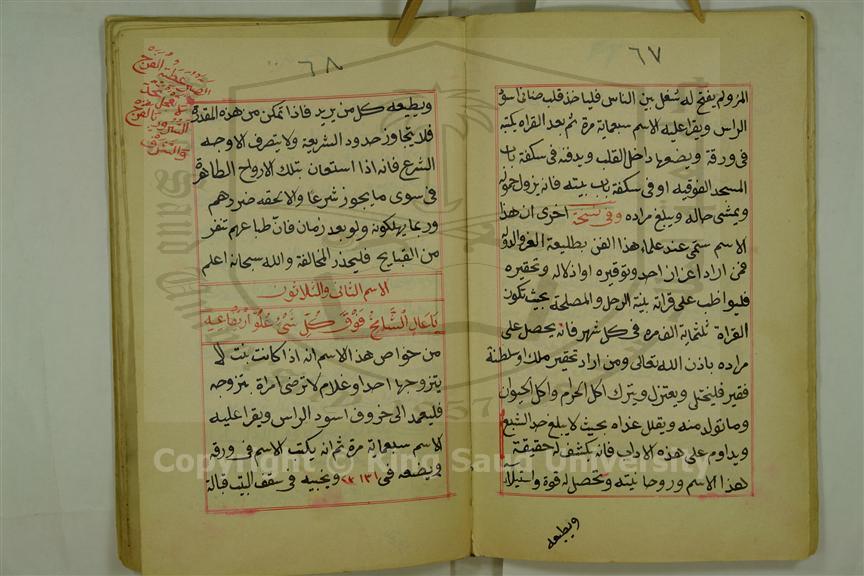 ٦٧
المزولم يفتح له شغل بين الناس فلياخذ قلب ضانى اسود
الراس ويقرا عليه الاسم سبعماية مرة ثم بعد القراه يكتبه
فى ورقة ويضعها داخل القلب ويدفنه فى سكفة باب
المسجد الفوقيه او فى سكفة باب بيته فانه يزول خموله
ويمشى حاله ويبلغ مراده وفى نسخة اخرى ان هذا
الاسم سمى عند علماء هذا الفن بطليعة العز والدوله
فمن اراد اعزاز احد وتوقيره او اذلاله وتحقيره
فليواظب على قراته بنية الرجل والمصلحة بحيث تكون
القراة ثلثماية الف مره فى كل شهر فانه يحصل على
مراده باذن الله تعالى ومن اراد تحقير ملك او سلطنة
فقير فليختلى ويعتزل ويترك اكل الحرام واكل الحيوان
وما تولد منه ويقلل غذاه بحيث لا يبلغ حد الشبع
ويداوم على هذه الاداب فانه يكشف له حقيقة
هذا الاسم وروحانيته وتحصل له قوة واستيلاء
ويطيعه
٦٨
ويطيعه كل من يريد فاذا تمكن من هذه المقدرة
فلا يتجاوز حدود الشريعة ولا يتصرف الا وجه
الشرع فانه اذا استعان بتلك الارواح الطاهرة
فى سوى ما يجوز شرعا والا لحقه ضررهم
وربما يهلكونه ولو بعد زمان فان طباعهم تنفر
من القبايح فليحذر المخالفة والله سبحانه اعلم
الاسم الثانى والثلاثون
يا عال الشامخ فوق كل شئ علو ارتفاعه
من خواص هذا الاسم انه اذا كانت بنت لا
يتزوجها احد او غلام لا ترضى امراة بتزوجه
فليعمد الى خروف اسود الراس ويقرا عليه
الاسم سبعماية مرة ثم انه يكتب الاسم فى ورقه
ويضعه فى ويجيبه فى سقف البيت قبالة